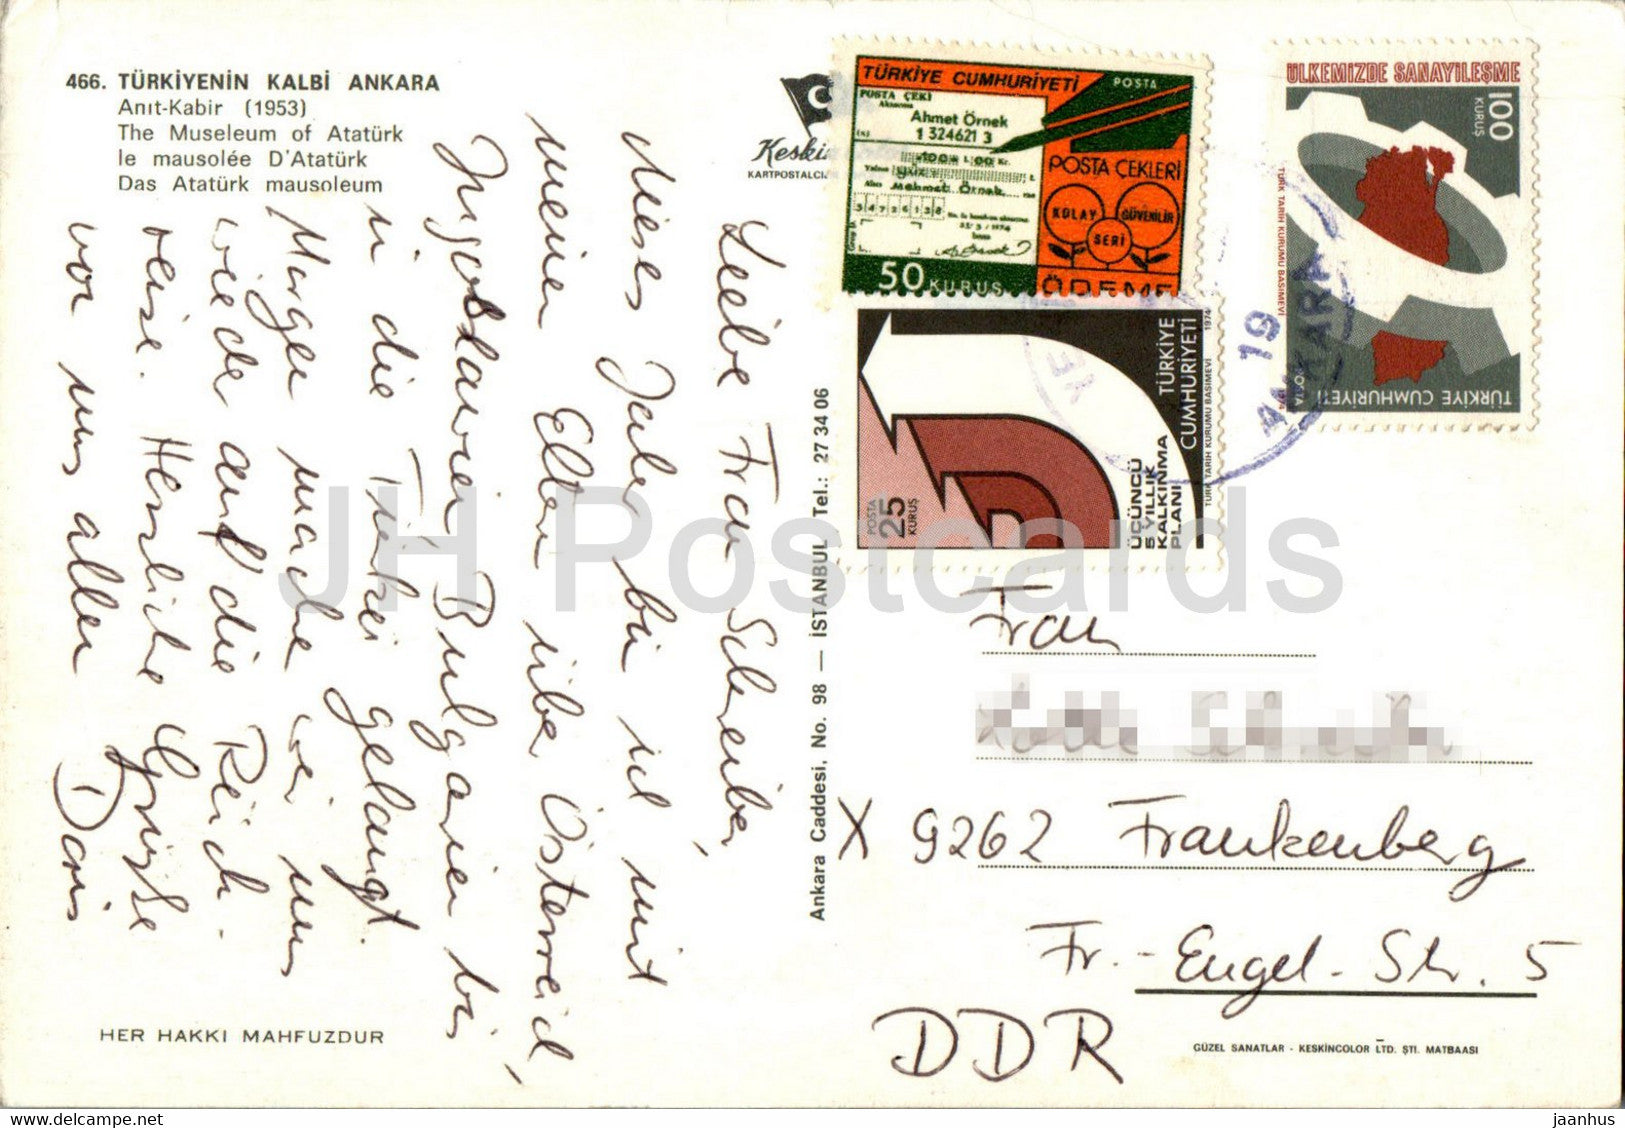 466. TÜRKİYENİN KALBİ ANKARA
Anıt-Kabir (1953)
The Museleum of Atatürk
le mausolée D'Atatürk
Das Atatürk mausoleum
Keskin
KARTPOSTALCI
Liebe Frau Schreiber,
dieses Jahr bin ich mit
meinen Eltern über Österreich,
Jugoslawien Bulgarien bis
in die Türkei gelangt.
Morgen machen wir uns
wieder auf die Rück-
reise. Herzliche Grüße
von uns allen Doris
HER HAKKI MAHFUZDUR
Ankara Caddesi, No. 98 — İSTANBUL Tel.: 27 34 06
TÜRKİYE CUMHURİYETİ
POSTA
POSTA ÇEKİ
Ahmet Örnek
1 324621 3
100 L 00 Kr.
Mehmet Örnek
34726138
POSTA ÇEKLERİ
KOLAY
GÜVENİLİR
SERİ
ÖDEME
50 KURUŞ
TÜRKİYE
CUMHURİYETİ
1974
TÜRK TARİH KURUMU BASIMEVİ
POSTA
25
KURUŞ
ÜÇÜNCÜ
5 YILLIK
KALKINMA
PLANI
ÜLKEMİZDE SANAYİLEŞME
100
KURUŞ
TÜRK TARİH KURUMU BASIMEVİ
POSTA 1974
TÜRKİYE CUMHURİYETİ
19
ANKARA
Frau
X 9262 Frankenberg
Fr.-Engel-Str. 5
DDR
GÜZEL SANATLAR - KESKİNCOLOR LTD. ŞTİ. MATBAASI
JH Postcards
https://www.delcampe.net
jaanhus